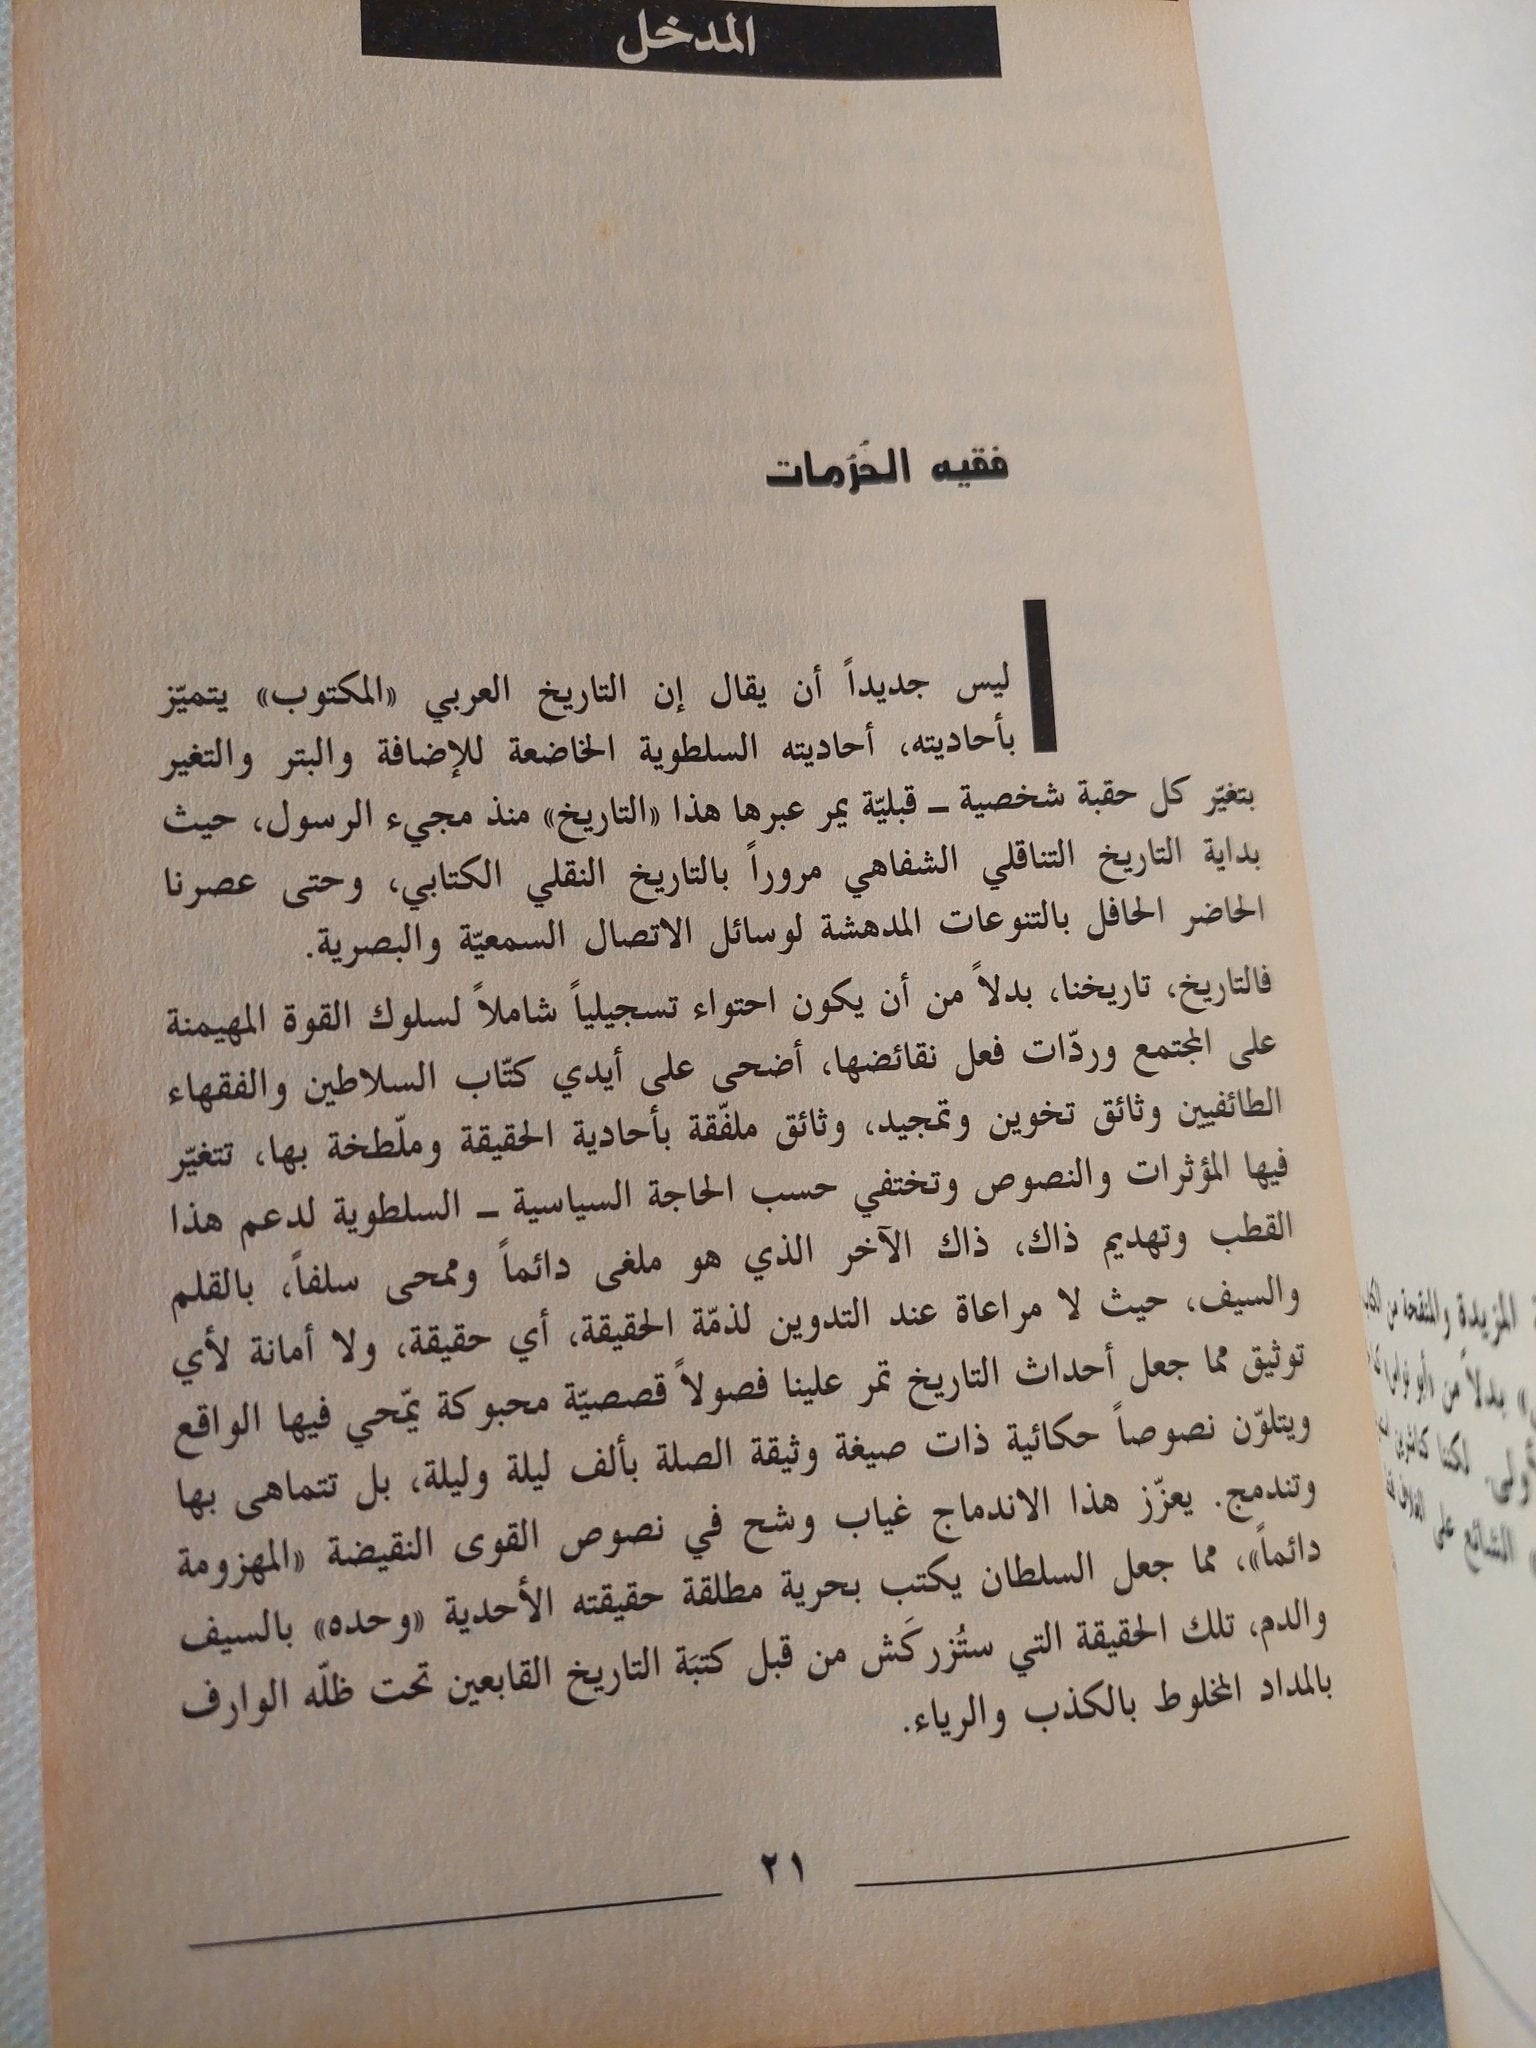 المدخل
فقيه الحُرَمات
ليس جديداً أن يقال إن التاريخ العربي «المكتوب» يتميّز
بأحاديته، أحاديته السلطوية الخاضعة للإضافة والبتر والتغير
بتغيّر كل حقبة شخصية ــ قبليّة يمر عبرها هذا «التاريخ» منذ مجيء الرسول، حيث
بداية التاريخ التناقلي الشفاهي مروراً بالتاريخ النقلي الكتابي، وحتى عصرنا
الحاضر الحافل بالتنوعات المدهشة لوسائل الاتصال السمعيّة والبصرية.
فالتاريخ، تاريخنا، بدلاً من أن يكون احتواء تسجيلياً شاملاً لسلوك القوة المهيمنة
على المجتمع وردّات فعل نقائضها، أضحى على أيدي كتّاب السلاطين والفقهاء
الطائفيين وثائق تخوين وتمجيد، وثائق ملفّقة بأحادية الحقيقة وملّطخة بها، تتغيّر
فيها المؤثرات والنصوص وتختفي حسب الحاجة السياسية ــ السلطوية لدعم هذا
القطب وتهديم ذاك، ذاك الآخر الذي هو ملغى دائماً وممحى سلفاً، بالقلم
والسيف، حيث لا مراعاة عند التدوين لذمّة الحقيقة، أي حقيقة، ولا أمانة لأي
توثيق مما جعل أحداث التاريخ تمر علينا فصولاً قصصيّة محبوكة يمّحي فيها الواقع
ويتلوّن نصوصاً حكائية ذات صيغة وثيقة الصلة بألف ليلة وليلة، بل تتماهى بها
وتندمج. يعزّز هذا الاندماج غياب وشح في نصوص القوى النقيضة «المهزومة
دائماً»، مما جعل السلطان يكتب بحرية مطلقة حقيقته الأحدية «وحده» بالسيف
والدم، تلك الحقيقة التي ستُزركَش من قبل كتبَة التاريخ القابعين تحت ظلّه الوارف
بالمداد المخلوط بالكذب والرياء.
٢١
المزيدة والمنقحة من
بدلاً من